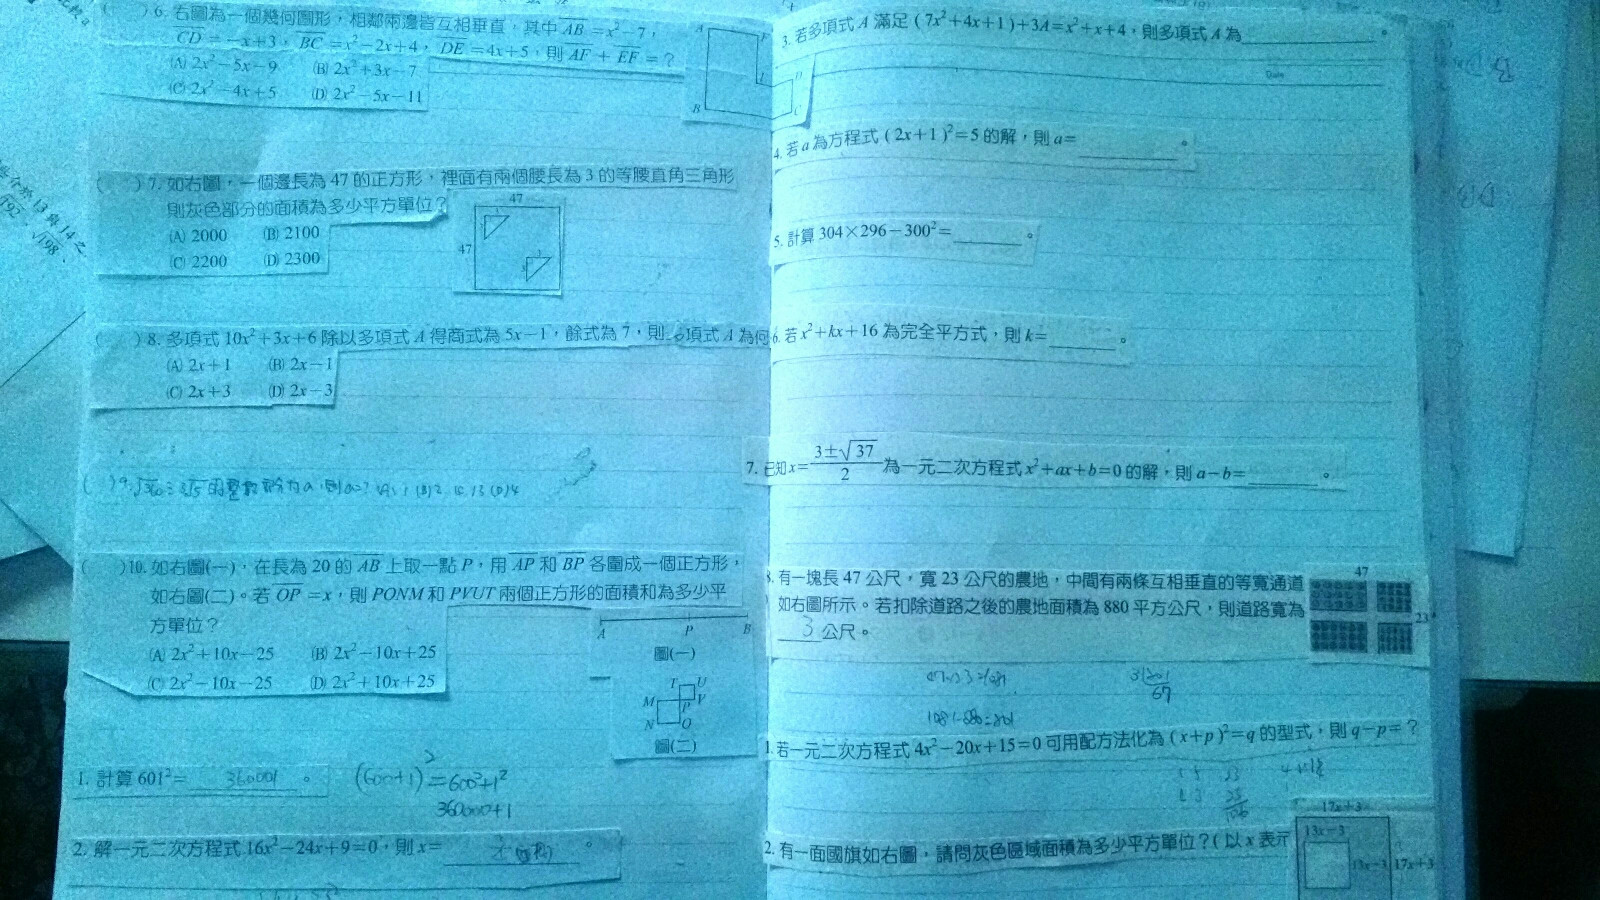 ( ) 6. 右圖為一個幾何圖形，相鄰兩邊皆互相垂直，其中 AB = x²−7，
CD = −x+3，BC = x²−2x+4，DE = 4x+5，則 AF + EF = ？
(A) 2x²−5x−9 (B) 2x²+3x−7
(C) 2x²−4x+5 (D) 2x²−5x−11
A
B
C
D
( ) 7. 如右圖，一個邊長為 47 的正方形，裡面有兩個腰長為 3 的等腰直角三角形
則灰色部分的面積為多少平方單位？
(A) 2000 (B) 2100
(C) 2200 (D) 2300
47
47
( ) 8. 多項式 10x²+3x+6 除以多項式 A 得商式為 5x−1，餘式為 7，則 項式 A 為何
(A) 2x+1 (B) 2x−1
(C) 2x+3 (D) 2x−3
( ) 10. 如右圖(一)，在長為 20 的 AB 上取一點 P，用 AP 和 BP 各圍成一個正方形，
如右圖(二)。若 OP = x，則 PONM 和 PVUT 兩個正方形的面積和為多少平
方單位？
(A) 2x²+10x−25 (B) 2x²−10x+25
(C) 2x²−10x−25 (D) 2x²+10x+25
A P B
圖(一)
T U
M P V
N O
圖(二)
1. 計算 601² = 360001 。 (600+1)² = 600²+1²
360000+1
2. 解一元二次方程式 16x²−24x+9=0，則 x= 。
3. 若多項式 A 滿足 ( 7x²+4x+1 ) +3A=x²+x+4，則多項式 A 為 。
Date
4. 若 a 為方程式 ( 2x+1 )²=5 的解，則 a= 。
5. 計算 304×296−300²= 。
6. 若 x²+kx+16 為完全平方式，則 k= 。
7. 已知 x= 3±√37 / 2 為一元二次方程式 x²+ax+b=0 的解，則 a−b= 。
8. 有一塊長 47 公尺，寬 23 公尺的農地，中間有兩條互相垂直的等寬通道
如右圖所示。若扣除道路之後的農地面積為 880 平方公尺，則道路寬為
3 公尺。
47
23
67
1. 若一元二次方程式 4x²−20x+15=0 可用配方法化為 ( x+p )²=q 的型式，則 q−p= ？
2. 有一面國旗如右圖，請問灰色區域面積為多少平方單位？( 以 x 表示
17x+3
13x−3
13x−3
17x+3